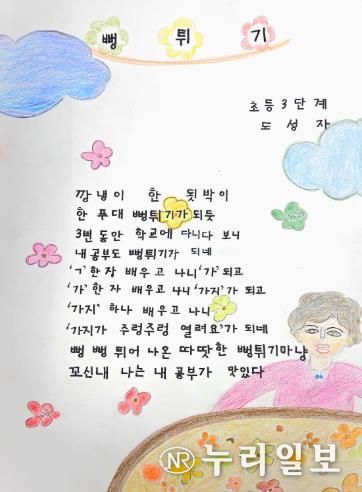 뻥 튀 기
초등 3 단계
도 성 자
깡냉이 한 됫박이
한 푸대 뻥튀기가 되듯
3년 동안 학교에 다니다 보니
내 공부도 뻥튀기가 되네
'ㄱ' 한 자 배우고 나니 '가' 되고
'가' 한 자 배우고 나니 '가지' 가 되고
'가지' 하나 배우고 나니
'가지가 주렁주렁 열려요' 가 되네
뻥 뻥 튀어 나온 따땃한 뻥튀기마냥
꼬신내 나는 내 공부가 맛있다
NR 누리일보